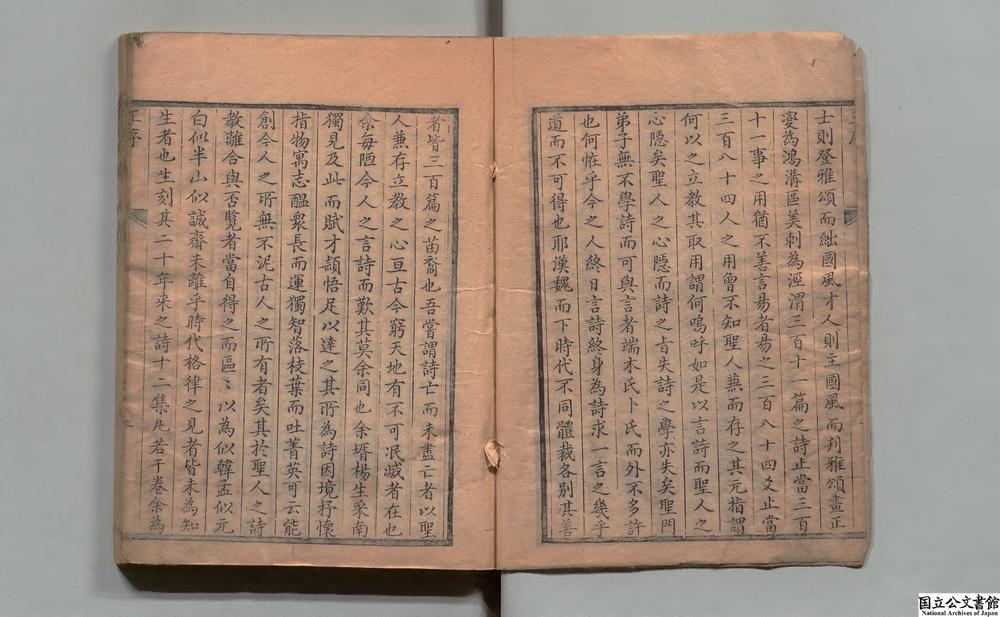 士則登雅頌而絀國風才人則主國風而刋雅頌畫正
變為鴻溝區美刺為涇渭三百十一篇之詩止當三百
十一事之用猶不善言昜者昜之三百八十四爻止當
三百八十四人之用曾不知聖人蒹而存之其元指謂
何以之立教其取用謂何嗚呼如是以言詩而聖人之
心隱矣聖人之心隱而詩之㫖失詩之學亦失矣聖門
弟子無不學詩而可與言者端木氏卜氏而外不多許
也何恠乎今之人終日言詩終身為詩求一言之幾乎
道而不可得也耶漢魏而下時代不同體裁各别淇善
者皆三百篇之苗裔也吾嘗謂詩亡而未盡亡者以聖
人蒹存立教之心亘古今窮天地有不可泯滅者在也
余每陋今人之言詩而歎其莫余同也余壻楊生采南
獨見及此而賦才頴悟足以達之其所為詩因境抒懷
指物寓志醖衆長而運獨智落枝葉而吐菁英可云能
創今人之所無不泥古人之所有者矣其於聖人之詩
教離合與否覽者當自得之而區〻以為似韓孟似元
白似半山似誠齋未離乎時代格律之見者皆未為知
生者也生刻其二十年来之詩十二集凢若干卷余為
王序
二
国立公文書館
National Archives of Japan